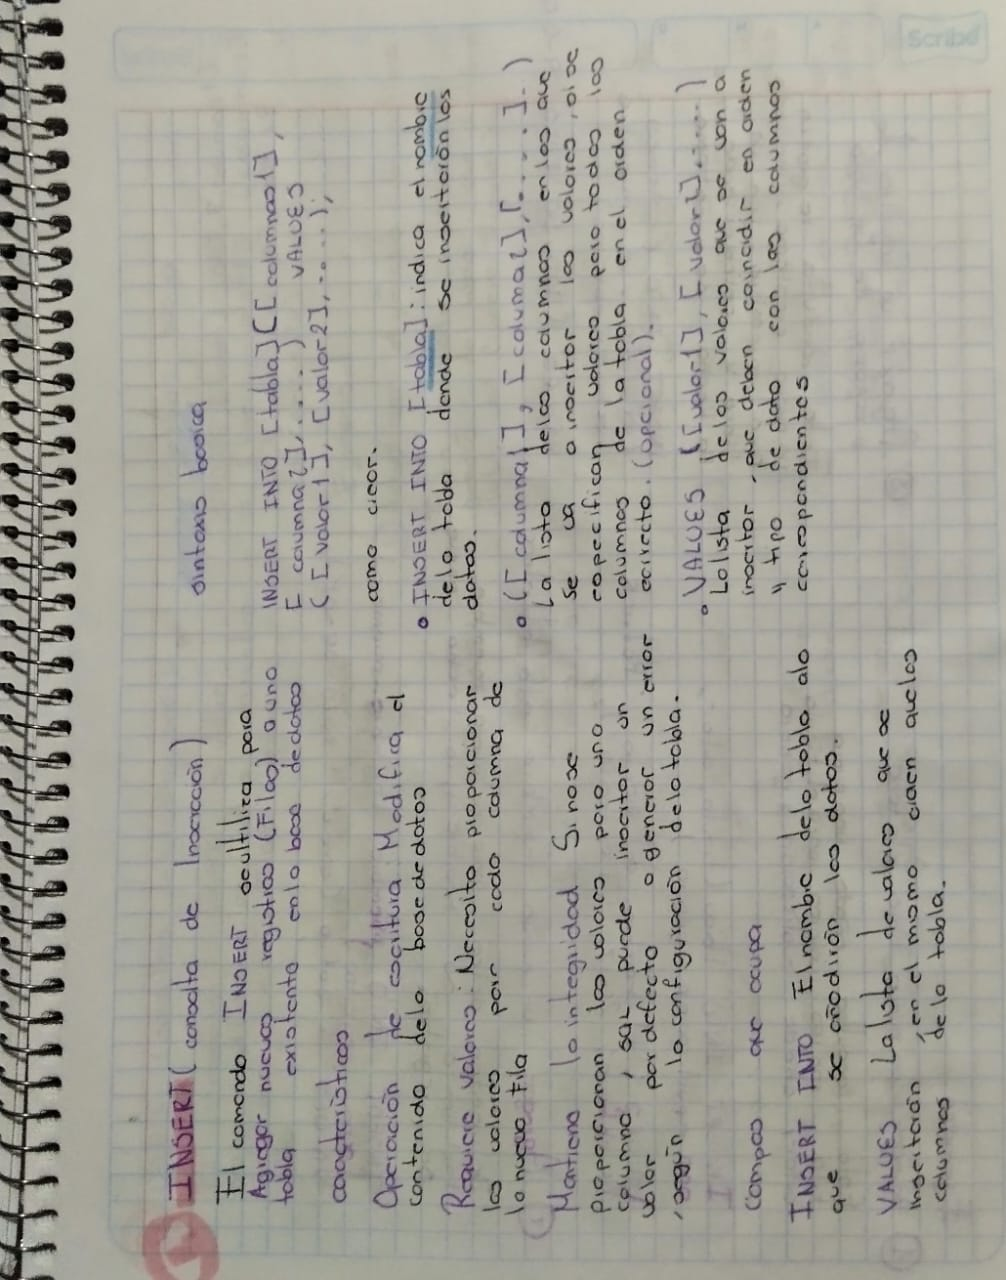 Scribe
INSERT (consulta de Inserción)
El comando INSERT se ultiliza para
Agregar nuevos registros (Filas) a una
tabla existente en la base de datos
características
Operación de escritura Modifica el
contenido de la base de datos
Requiere valores: Necesita proporcionar
los valores para cada columna de
la nueva Fila
Mantiene la integridad Si no se
proporcionan los valores para una
columna, SQL puede insertar un
valor por defecto o generar un error
, según la configuración de la tabla.
Campos que ocupa
INSERT INTO El nombre de la tabla a la
que se añadirán los datos.
VALUES La lista de valores que se
insertarán, en el mismo orden que los
columnas de la tabla.
sintaxis basica
INSERT INTO [tabla] ([columnas1],
[columna2], .....) VALUES
([valor1], [valor2], .....);
como crear.
• INSERT INTO [tabla]: indica el nombre
de la tabla donde se insertarán los
datos.
• ([columna1], [columa2], [.....]..)
La lista de las columnas en las que
se va a insertar los valores, si se
especifican valores para todas las
columnas de la tabla en el orden
correcto. (opcional).
• VALUES ([valor1], [valor2].....)
La lista de los valores que se van a
insertar, que deben coincidir en orden
y tipo de dato con las columnas
correspondientes